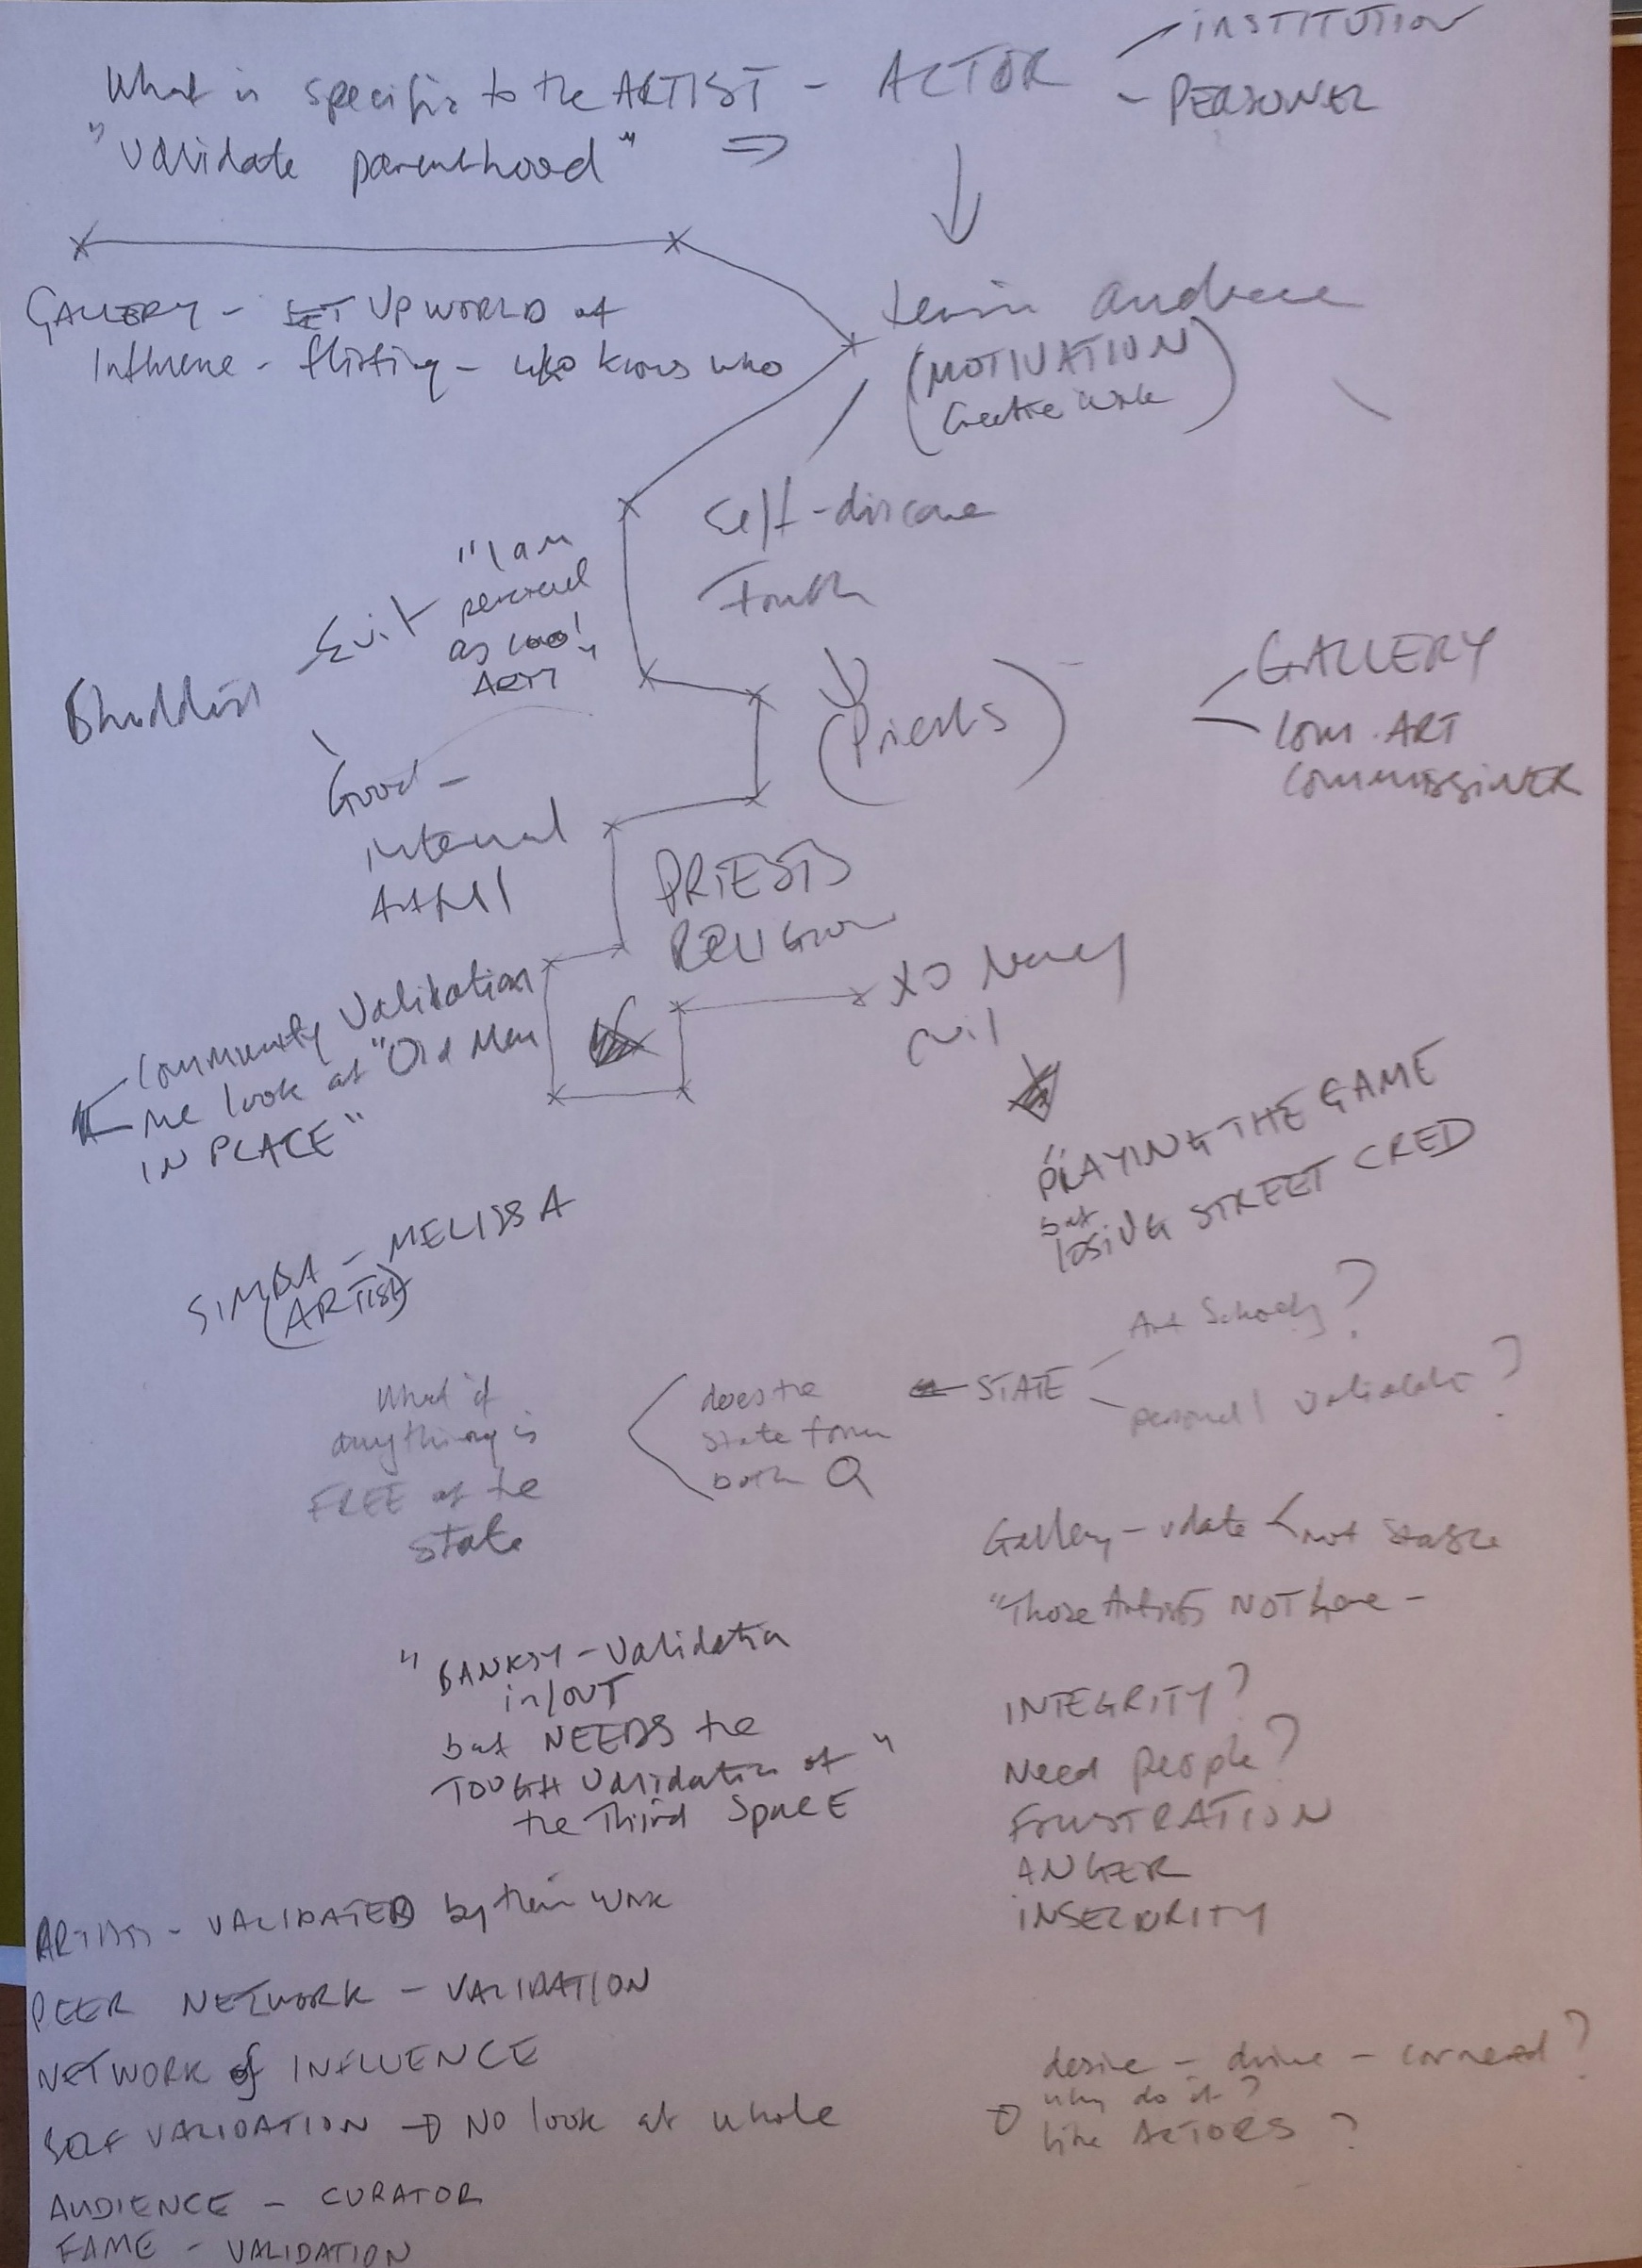 What is specific to the ARTIST - ACTOR
INSTITUTION
- PERSONEL
"validate parenthood" ⇒
GALLERY - SET UP WORLD of
Influence - flirting - who knows who
audience
(MOTIVATION)
Creative work
Self-
"I am
perceived
as cool"
ARTY
Evil
Bhuddist
Good -
internal
(Priests)
GALLERY
Com. ART
COMMISSINER
PRIESTS
RELIGION
Money
evil
Community Validation
we look at "Old Men
IN PLACE"
"PLAYING THE GAME
but
LOSING STREET CRED
SIMBA - MELISSA
(ARTIST)
Art Schools?
STATE
personal validation?
does the
state form
both Q
What if
anything is
FREE of the
state
Gallery - not stable
"Those Artists NOT here -
"BANKSY - validation
in/OUT
but NEEDS the
TOUGH validation of"
the Third SpacE
INTEGRITY?
Need people?
FRUSTRATION
ANGER
INSECURITY
ARTISTS - VALIDATED by their work
PEER NETWORK - VALIDATION
NETWORK of INFLUENCE
SELF VALIDATION → NO look at whole
AUDIENCE - CURATOR
FAME - VALIDATION
desire - drive -
why do it?
like ACTORS?